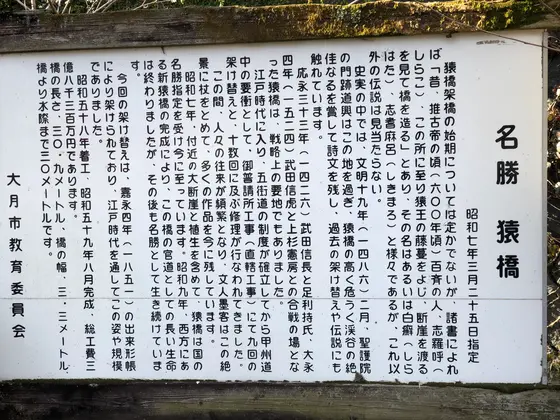 名勝 猿橋
昭和七年三月二十五日指定
猿橋架橋の始期については定かでないが、諸書によれ
ば「昔、推古帝の頃(六〇〇年頃)百済の人、志羅呼(し
らこ)、この所に至り猿王の藤蔓をよじ、断崖を渡る
を見て橋を造る」とあり、その名はあるいは白癬(しら
はた)、志耆麻呂(しきまろ)と様々であるが、これ以
外の伝説は見当たらない。
史実の中では、文明十九年(一四八六)二月、聖護院
の門跡道興はこの地を過ぎ、猿橋の高く危うく渓谷の絶
佳なるを賞して詩文を残し、過去の架け替えや伝説にも
触れています。
応永三十三年(一四二六)武田信長と足利持氏、大永
四年(一五二四)武田信虎と上杉憲房との合戦の場とな
った猿橋は、戦略上の要地でもありました。
江戸時代に入り、五街道の制度が確立してから甲州道
中の要衝として、御普請所工事(直轄工事)にて九回の
架け替えと、十数回に及ぶ修理が行なわれてきました。
この間、人々の往来が頻繁となり、文人墨客はこの絶
景に杖をとめて、多くの作品を今に残しています。
昭和七年、付近の大断崖と植生を含めて、猿橋は国の
名勝指定を受け今に至っています。昭和九年、西方にあ
る新猿橋の完成により、この橋の官道としての長い生命
は終わりましたが、その後も名勝として生き続けていま
す。
今回の架け替えは、嘉永四年(一八五一)の出来形帳
により架けられており、江戸時代を通してこの姿や規模
でありました。
昭和五十八年着工、昭和五十九年八月完成、総工費三
億八千三百万円であります。
橋の長さ、三〇.九メートル、橋の幅、三.三メートル、
橋より水際まで三〇メートルです。
大月市教育委員会